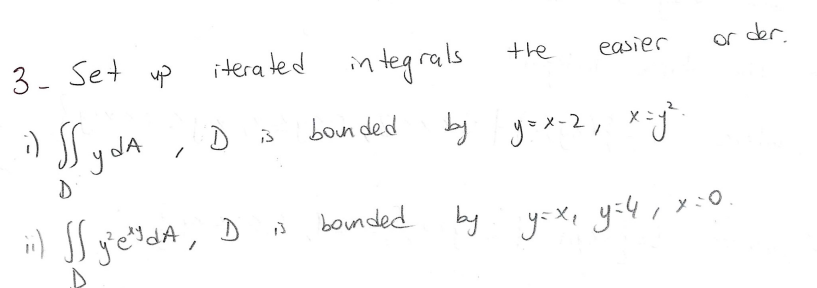 3- Set up iterated integrals the easier order.
i) ∬ y dA , D is bounded by y=x-2, x=y².
D
ii) ∬ y²e^{xy} dA, D is bounded by y=x, y=4, x=0.
D